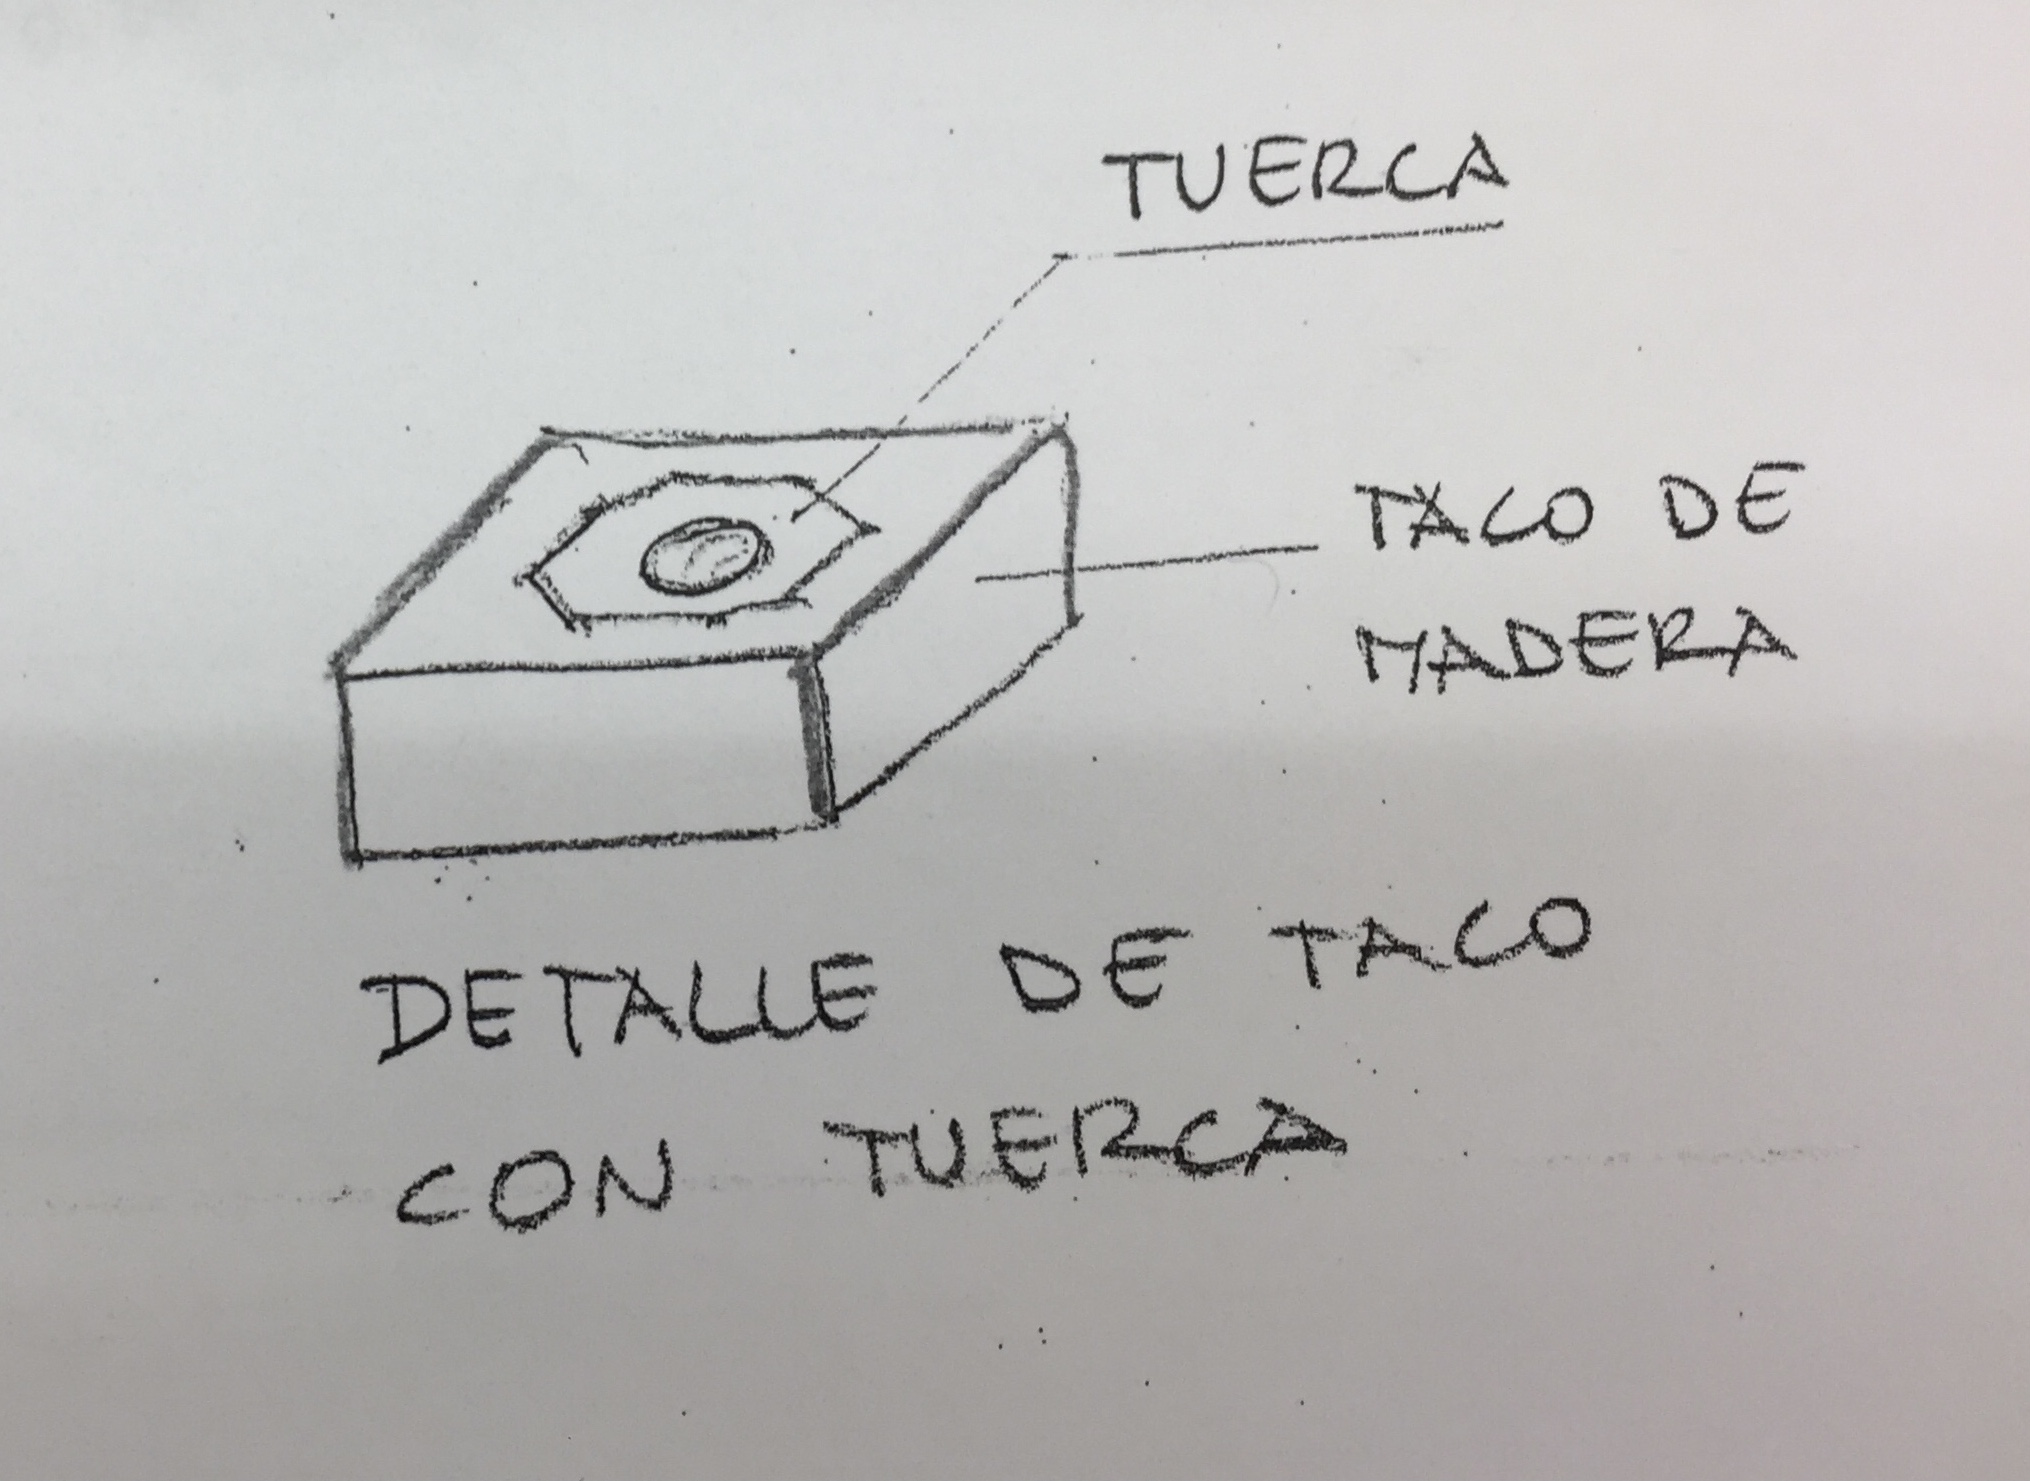 TUERCA
TACO DE
MADERA
DETALLE DE TACO
CON TUERCA